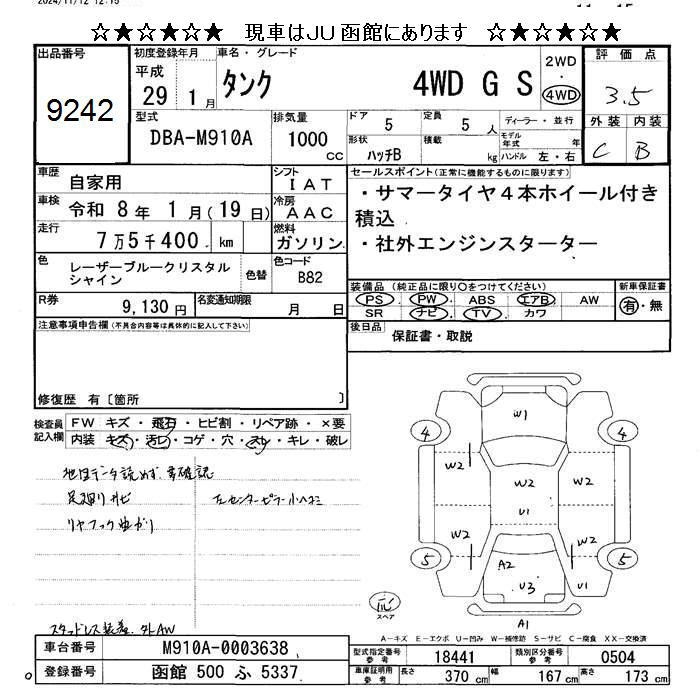 2024/11/12 12:15
☆★☆★☆★ 現車はJU函館にあります ☆★☆★☆★
出品番号
9242
初度登録年月
平成
29 1月
車名・グレード
タンク 4WD G S
2WD
・
4WD
評価点
3.5
外装 内装
C B
型式
DBA-M910A
排気量
1000
cc
ドア
5
定員
5人
形状
ハッチB
積載
kg
ディーラー・並行
モデル年式
年
ハンドル 左・右
車歴
自家用
シフト
IAT
車検
令和 8年 1月(19日)
冷房
AAC
走行
7万5千400 km
燃料
ガソリン
色
レーザーブルークリスタル
シャイン
色替
色コード
B82
R券
9,130円
名変通知期限
月 日
セールスポイント(正常に機能するものに限ります)
・サマータイヤ4本ホイール付き
積込
・社外エンジンスターター
装備品(純正品に限り○をつけてください)
PS . PW . ABS エアB . AW
SR ナビ . TV . カワ
新車保証書
有・無
後日品
保証書・取説
注意事項申告欄(不具合内容等は具体的に記入して下さい)
修復歴 有〔箇所 〕
検査員
記入欄
FW キズ・飛石・ヒビ割・リペア跡・×要
内装 キズ・汚レ・コゲ・穴・スレ・キレ・破レ
地図データ読めず.要確認
足廻りサビ
左センターピラー小ヘコミ
リヤフック曲がり
スタッドレス装着.外AW
W1
4 4
W2 W2 W2
U1
W2 W2
5 5
A2
U3 U1
A1
スペア
A-キズ E-エクボ U-凹み W-補修跡 S-サビ C-腐食 XX-交換済
車台番号
M910A-0003638
登録番号
函館 500 ふ 5337
型式指定番号
参考
18441
類別区分番号
参考
0504
車庫証明用
参考
長さ 370 cm 幅 167 cm 高さ 173 cm